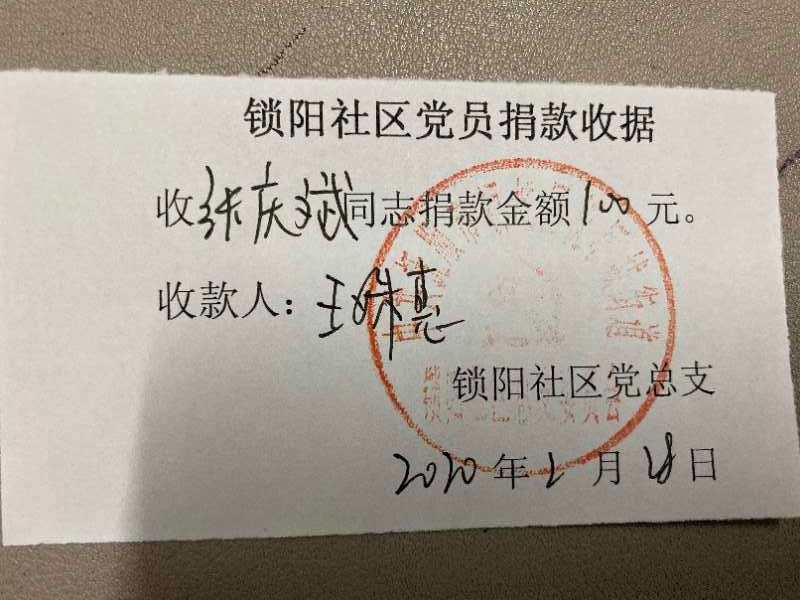 锁阳社区党员捐款收据
收张庆斌同志捐款金额100元。
收款人：王
锁阳社区党总支
2020年2月28日